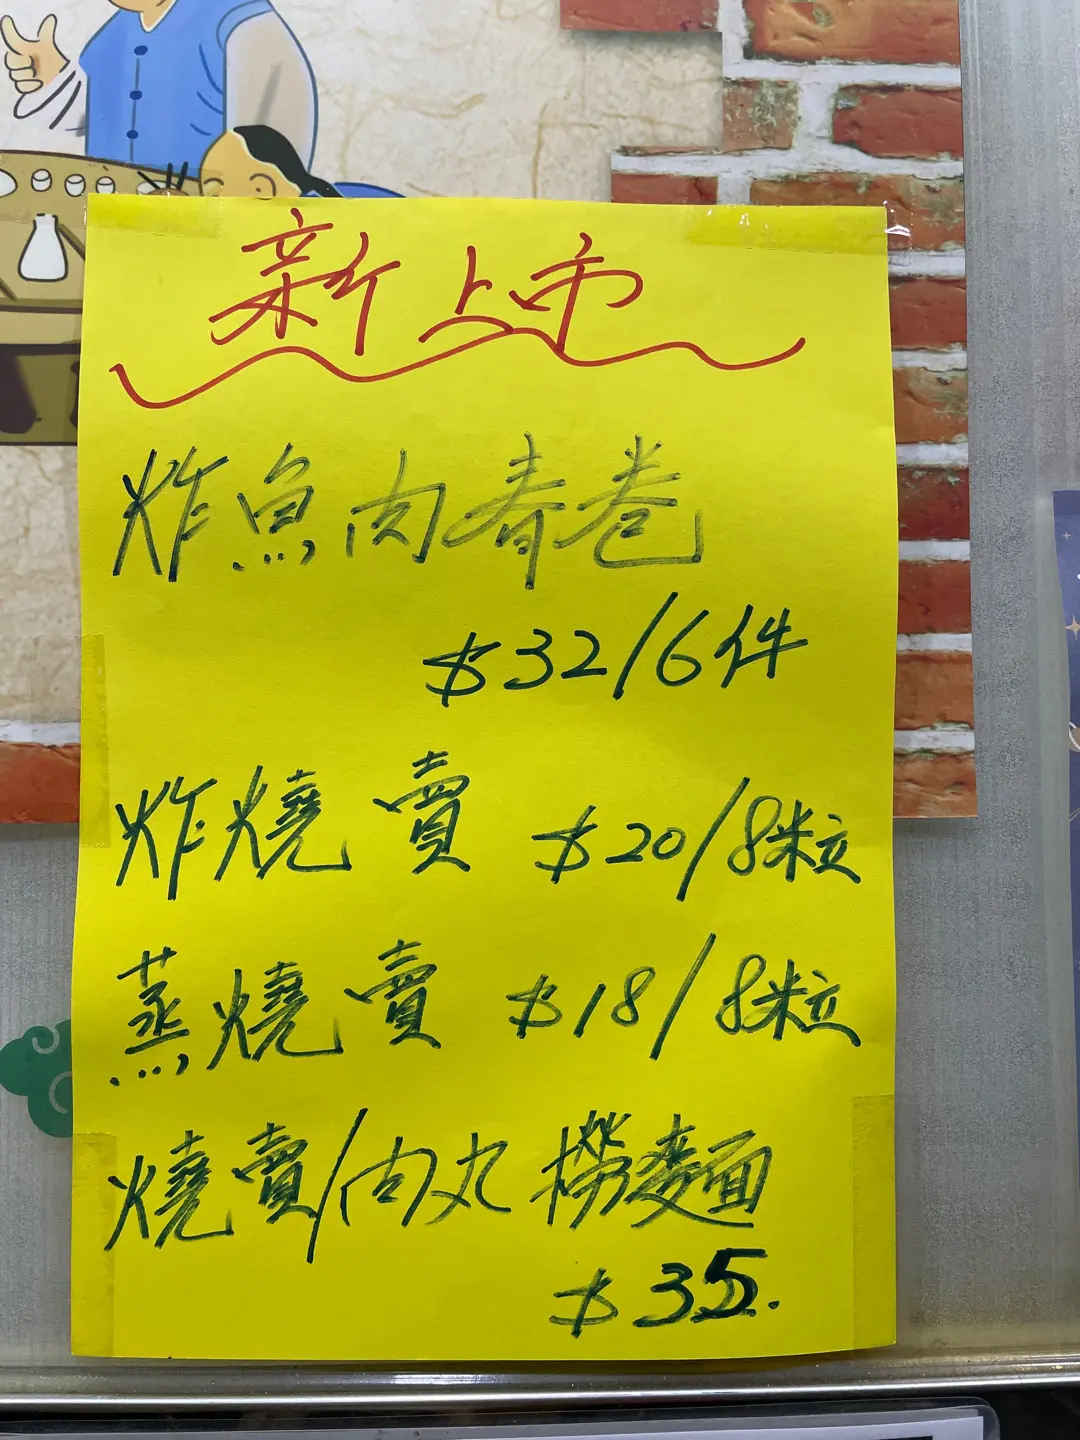 新上市
炸魚肉春卷
$32/6件
炸燒賣 $20/8粒
蒸燒賣 $18/8粒
燒賣/肉丸 撈麵
$35.